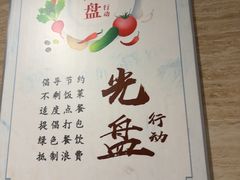 盘
行动
倡导节约
不剩饭菜
适度点餐
提倡打包
绿色餐飲
抵制浪費
光盘
行动